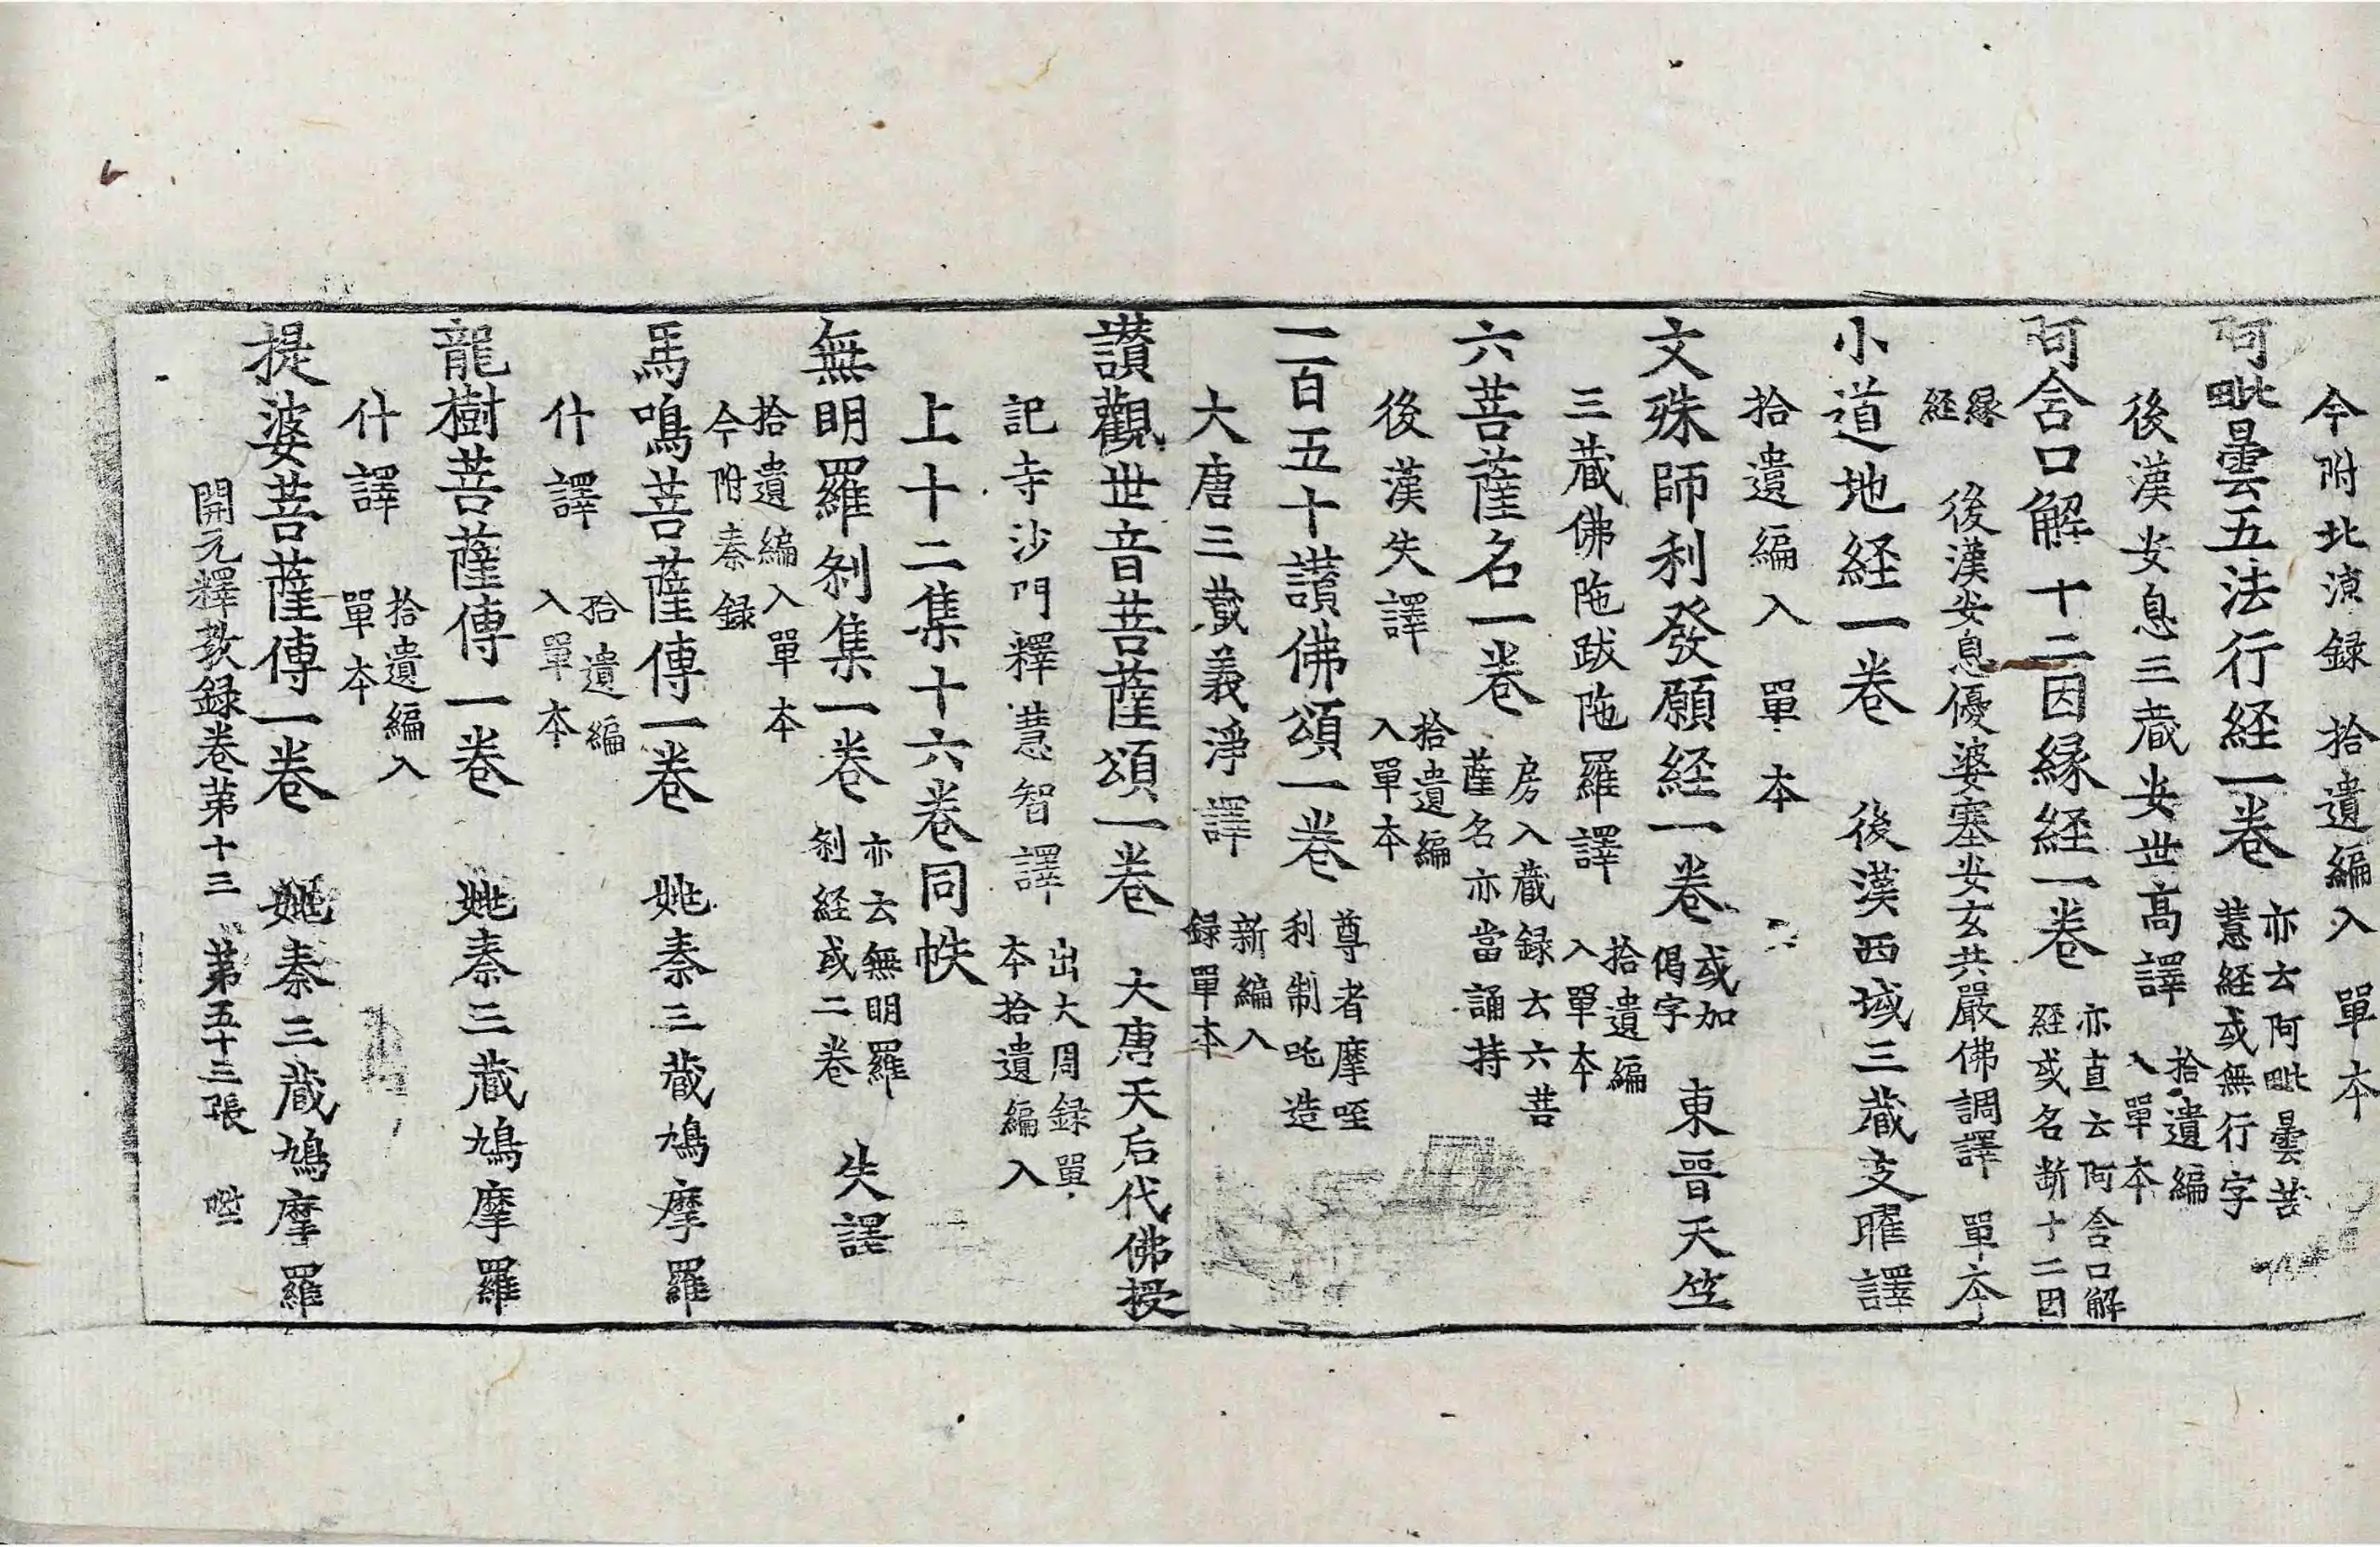 今附北涼録 拾遺編入 單本
阿毗曇五法行経一卷 亦云阿毗曇苦
慧経或無行字
後漢安息三藏安世高譯 拾遺編
入單本
阿含口解十二因縁経一卷 亦直云阿含口解
経或名断十二因
縁
経
後漢安息優婆塞安玄共嚴佛調譯 單本
小道地経一卷 後漢西域三藏支曜譯
拾遺編入 單本
文殊師利發願経一卷 或加
偈字
東晉天竺
三藏佛陁跋陁羅譯 拾遺編
入單本
六菩薩名一卷 房入藏録云六菩
薩名亦當誦持
後漢失譯 拾遺編
入單本
一百五十讃佛頌一卷 尊者摩咥
利制吒造
大唐三藏義淨譯 新編入
録單本
讃觀世音菩薩頌一卷 大唐天后代佛授
記寺沙門釋慧智譯 出大周録單
本拾遺編入
上十二集十六卷同帙
無明羅刹集一卷 亦云無明羅
刹経或二卷
失譯
拾遺編入單本
今附秦録
馬鳴菩薩傳一卷 姚秦三藏鳩摩羅
什譯 拾遺編
入單本
龍樹菩薩傳一卷 姚秦三藏鳩摩羅
什譯 拾遺編入
單本
提婆菩薩傳一卷 姚秦三藏鳩摩羅
開元釋教録卷苐十三 苐五十三張